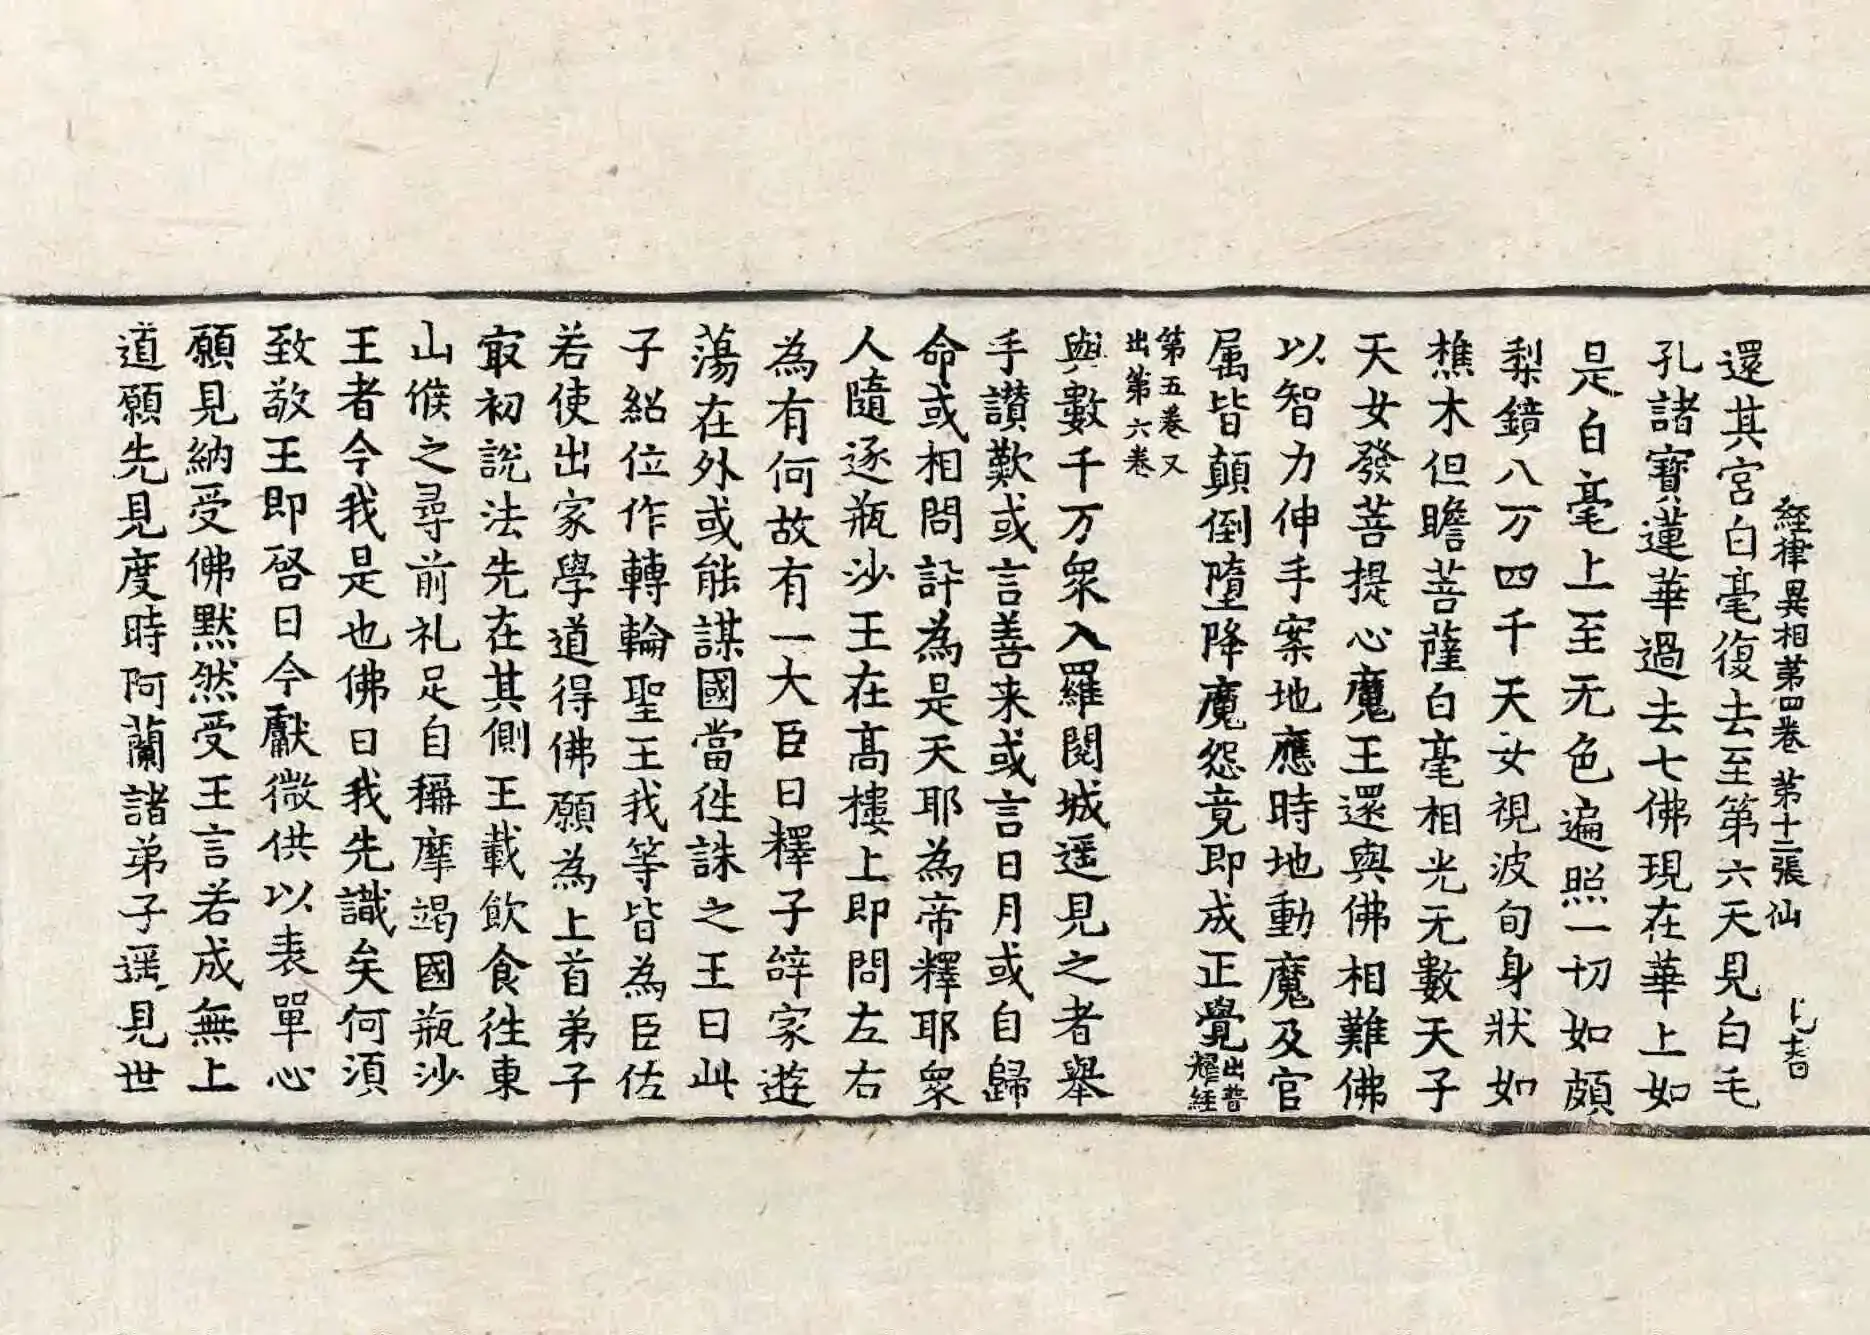 經律異相第四卷 第十二張 仙
還其宮白毫復去至第六天見白毛
孔諸寶蓮華過去七佛現在華上如
是白毫上至无色遍照一切如頗
梨鏡八万四千天女視波旬身狀如
樵木但瞻菩薩白毫相光无數天子
天女發菩提心魔王還與佛相難佛
以智力伸手案地應時地動魔及官
属皆顛倒墮降魔怨竟即成正覺出普
耀經
第五卷又
出第六卷
與數千万衆入羅閱城遥見之者舉
手讃歎或言善来或言日月或自歸
命或相問訃為是天耶為帝釋耶衆
人隨逐瓶沙王在髙樓上即問左右
為有何故有一大臣曰釋子辝家遊
蕩在外或能謀國當徃誅之王曰此
子紹位作轉輪聖王我等皆為臣佐
若使出家學道得佛願為上首弟子
㝡初說法先在其側王載飲食徃東
山候之尋前礼足自稱摩竭國瓶沙
王者今我是也佛曰我先識矣何湏
致敬王即啓曰今獻微供以表單心
願見納受佛默然受王言若成無上
道願先見度時阿蘭諸弟子遥見世